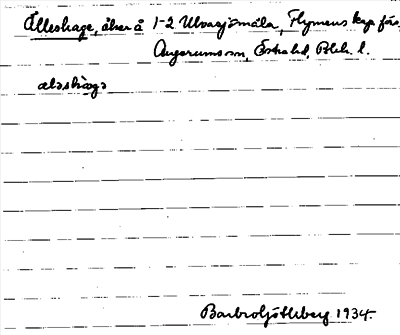 Ålleshage, åker å 1-2 Ulvasjömåla, Flymens kap. förs.
Augerums sn, Östra hd, Blek. l.
aləshàgə
Barbro Götlheberg 1934.